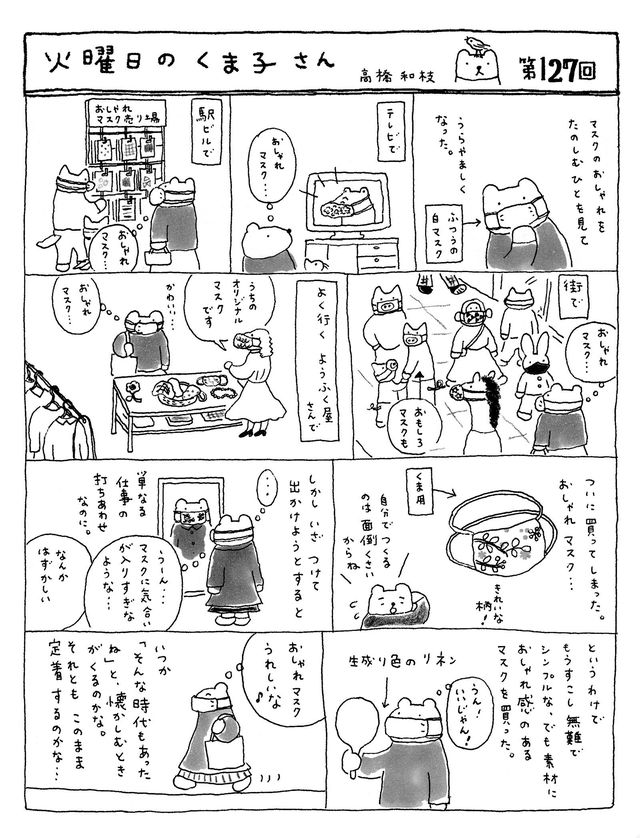 火曜日のくま子さん
高橋和枝
第127回
マスクのおしゃれを
たのしむひとを見て
うらやましく
なった。
ふつうの
白マスク
テレビで
おしゃれ
マスク…
駅ビルで
おしゃれ
マスク売り場
おしゃれ
マスク…
街で
おしゃれ
マスク…
おもしろ
マスクも
よく行く ようふく屋
さんで
うちの
オリジナル
マスク
です
かわいい…
おしゃれ
マスク…
ついに買ってしまった。
おしゃれマスク…
きれいな
柄!
くま用
自分でつくる
のは面倒くさい
からね
しかし いざ つけて
出かけようとすると
・・・
うーん…
マスクに気合い
が入りすぎな
ような…
単なる
仕事の
打ちあわせ
なのに。
なんか
はずかしい
というわけで
もうすこし無難で
シンプルな、でも素材に
おしゃれ感のある
マスクを買った。
うん!
いいじゃん!
生成り色のリネン
おしゃれマスク
うれしいな♪
いつか
「そんな時代もあった
ね」と、懐かしむとき
がくるのかな。
それとも このまま
定着するのかな…